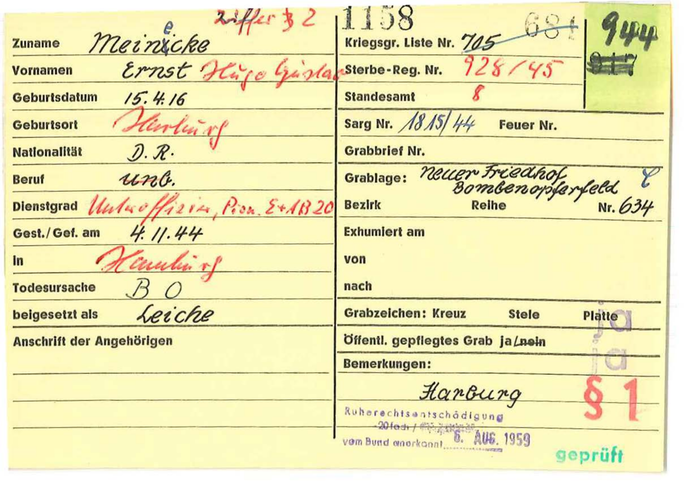 Ziffer § 2
1158
681
944
Zuname Meinecke
Kriegsgr. Liste Nr. 705
Vornamen Ernst Hugo Gustav
Sterbe-Reg. Nr. 928/45
Geburtsdatum 15.4.16
Standesamt 8
Geburtsort Harburg
Sarg Nr. 1815/44 Feuer Nr.
Nationalität D.R.
Grabbrief Nr.
Beruf unb.
Grablage: Neuer Friedhof
Bombenopferfeld
Dienstgrad Unteroffizier, Pion. E+AB 20
Bezirk Reihe Nr. 634
Gest./Gef. am 4.11.44
Exhumiert am
In Hamburg
von
Todesursache B O
nach
beigesetzt als Leiche
Grabzeichen: Kreuz Stele Platte
a
Anschrift der Angehörigen
Öffentl. gepflegtes Grab ja/nein
a
Bemerkungen:
Harburg
§ 1
Ruherechtsentschädigung
-20fach /
vom Bund anerkannt 6. AUG. 1959
geprüft